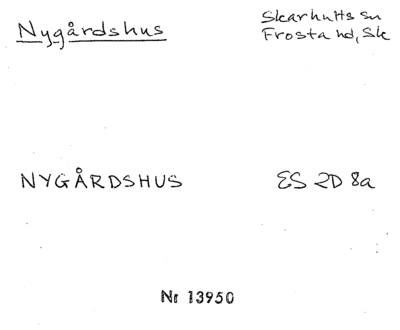 Nygårdshus
Skarhults sn
Frosta hd, Sk
NYGÅRDSHUS
ES 2D 8a
Nr 13950